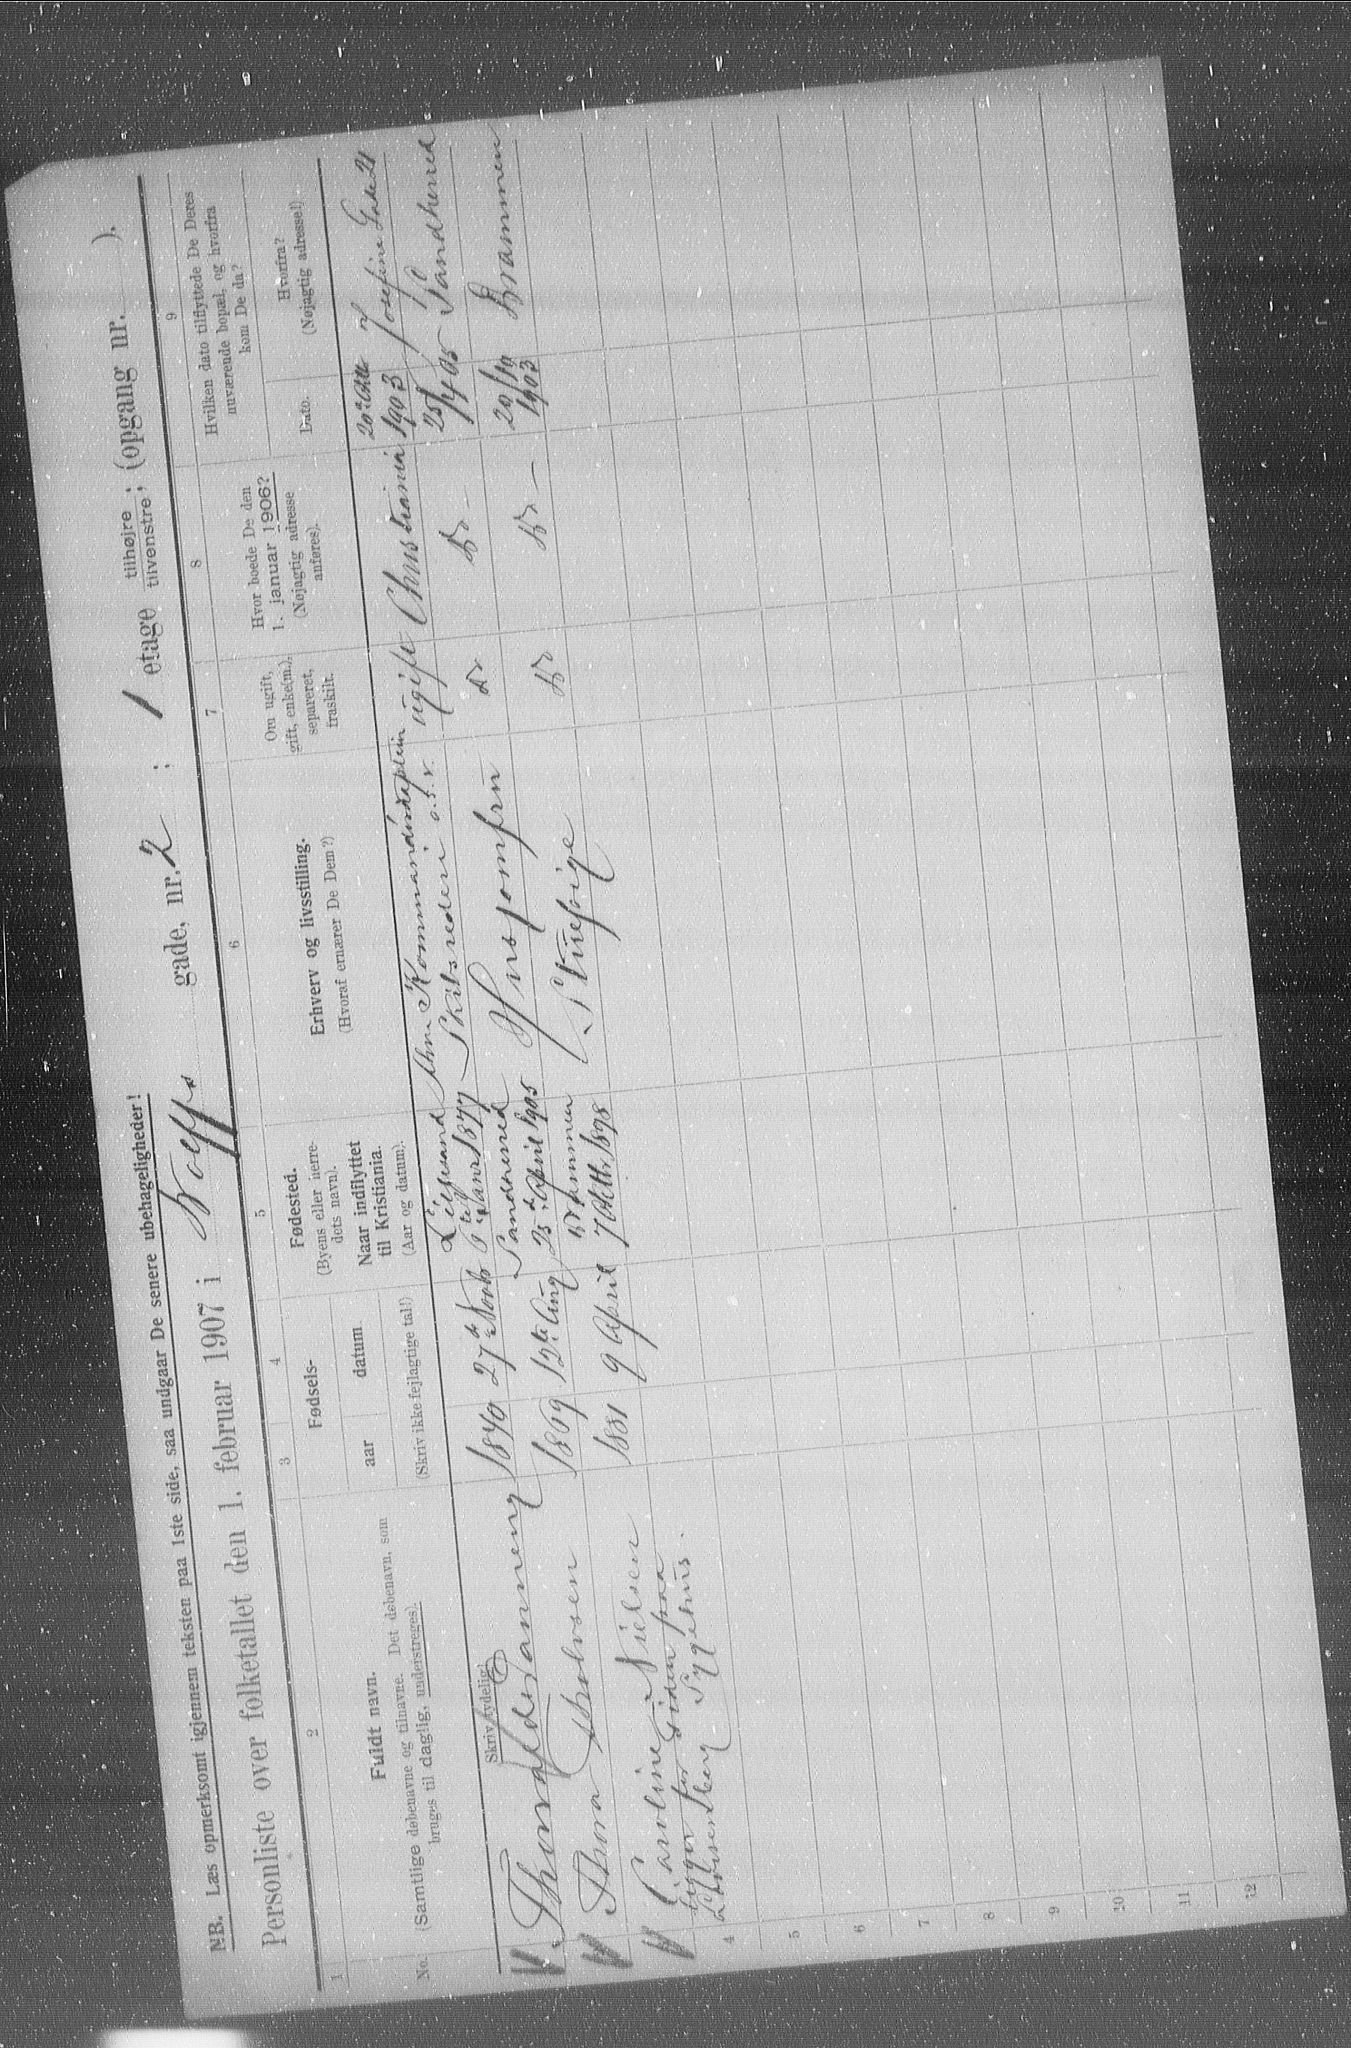 NB. Læs opmerksomt igjennem teksten paa 1ste side, saa undgaar De senere ubehageligheder!
Personliste over folketallet den 1. februar 1907 i Wolffs gade, nr. 2 ; 1 etage tilhøjre tilvenstre; (opgang nr. ).
1 2 3 4 5 6 7 8 9
No.
Fuldt navn.
(Samtlige døbenavne og tilnavne. Det døbenavn, som
bruges til daglig, understreges).
Skriv tydelig!
Fødsels-
aar datum
(Skriv ikke fejlagtige tal!)
Fødested.
(Byens eller herre-
dets navn).
Naar indflyttet
til Kristiania.
(Aar og datum).
Erhverv og livsstilling.
(Hvoraf ernærer De Dem?)
Om ugift,
gift, enke(m.),
separeret,
fraskilt.
Hvor boede De den
1. januar 1906?
(Nøjagtig adresse
anføres).
Hvilken dato tilflyttede De Deres
nuværende bopæl, og hvorfra
kom De da?
Dato.
Hvorfra?
(Nøjagtig adresse!)
1840 27de Novb ugift Christiania Josefine Gade 21
1903
1877 Skibsrederi o.s.v.
Thora Jakobsen 1869 12te Aug Sandherred Husjomfru Do Do - 25/4 05 Sandherred
25de April 1905
Caroline Nielsen 1881 9 April Drammen Stuepige Do Do - 20/10 Drammen
7 Oktb. 1898 1903
ligger for Tiden paa
Sygehus.
4
5
6
7
8
9
10
11
12